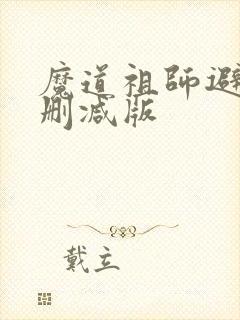 魔道祖师避
删减版
戴立